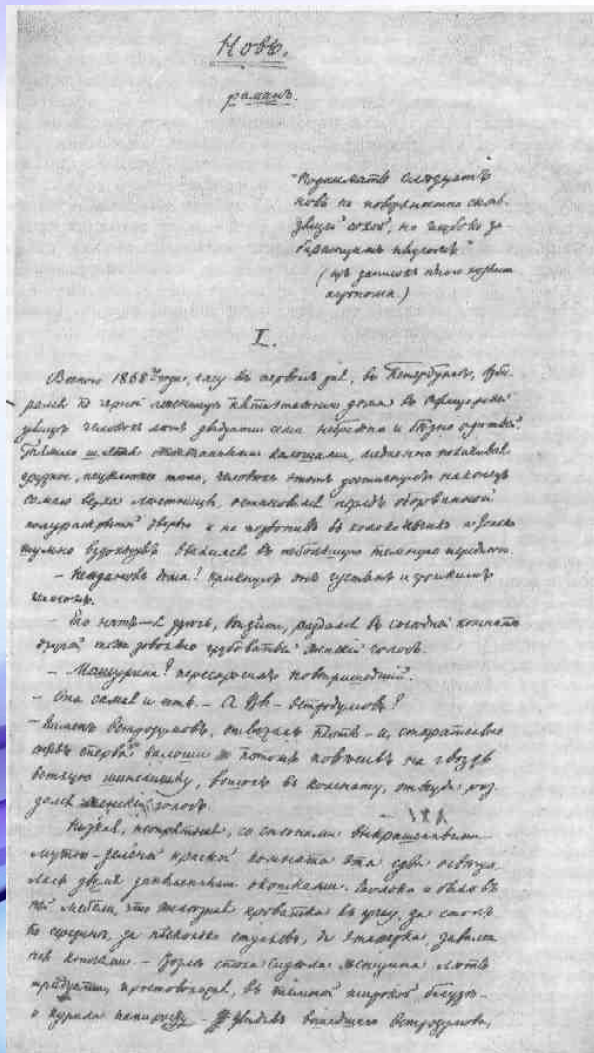 Новь.
романъ.
"Поднимать слѣдуетъ
новь не поверхностно сколь-
зящей сохой, но глубоко за-
бирающимъ плугомъ"
(изъ записокъ хозяина
агронома.)
I.
Весною 1868го года, часу въ первомъ дня, въ Петербургѣ, взби-
рался по черной лѣстницѣ пятиэтажнаго дома въ Офицерской
улицѣ человѣкъ лѣтъ двадцати семи небрежно и бѣдно одѣтый.
Тяжело шлепая стоптанными калошами, медленно покачивая
грузное, неуклюжее тѣло, человѣкъ этотъ достигнулъ наконецъ
самаго верха лѣстницы, остановился передъ оборванной
полураскрытой дверью и не позвонивъ въ колокольчикъ а
шумно вздохнувъ ввалился въ небольшую темную переднюю.
– Неждановъ дома? крикнулъ онъ густымъ и громкимъ
голосомъ.
– Его нѣтъ – я здѣсь, войдите, раздался въ сосѣдней комнатѣ
другой тоже довольно грубоватый женскій голосъ.
– Машурина? переспросилъ новопришедшій.
– Она самая и есть. – А Вы – Остродумовъ?
– Пименъ Остродумовъ, отвѣчалъ тотъ – и, старательно
снявъ сперва калоши потомъ повѣсивъ на гвоздь
ветхую шинелишку, вошелъ въ комнату, откуда раз-
дался женскій голосъ.
Низкая, неопрятная, со стѣнами выкрашенными
мутно-зеленой краской комната эта едва освѣща-
лась двумя запыленными окошками. Только и было въ
ней мебели, что желѣзная кроватка въ углу, да столъ
по серединѣ, да нѣсколько стульевъ, да этажерка, завален-
ная книгами – Возлѣ стола сидѣла женщина лѣтъ
тридцати, простоволосая, въ темной широкой блузѣ –
и курила папироску – Увидѣвъ вошедшаго Остродумова,